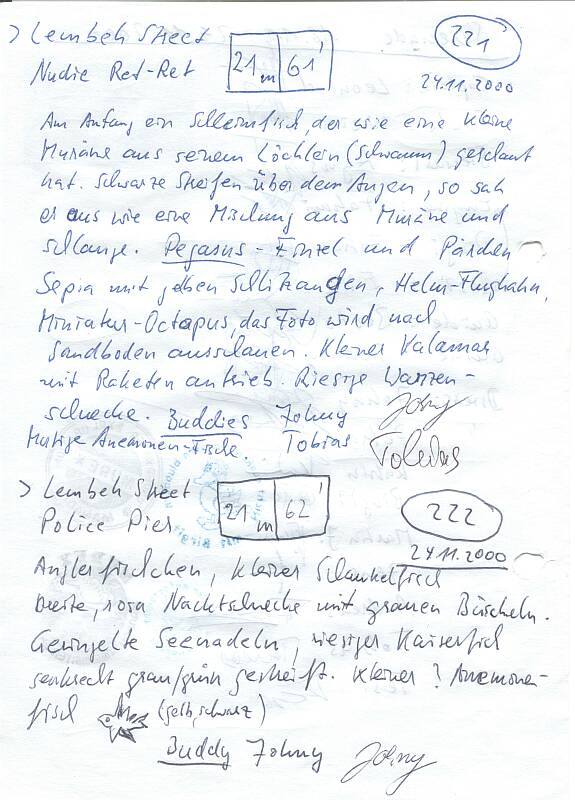 > Lembeh Street
21 m 61'
221
Nudie Ret-Ret
24.11.2000
Am Anfang ein Schleimfisch, der wie eine kleine
Muräne aus seinem Löchlein (Schwamm) geschaut
hat. Schwarze Streifen über den Augen, so sah
er aus wie eine Mischung aus Muräne und
Schlange. Pegasus - Einzel und Pärchen
Sepia mit gelben Schlitzaugen, Helm-Flughahn,
Miniatur-Octopus, das Foto wird nach
Sandboden ausschauen. Kleiner Kalamar
mit Raketenantrieb. Riesige Warzen-
schnecke. Buddies Johny Johny
Mutige Anemonen-Fische. Tobias
> Lembeh Street
21 m 62'
222
Police Pier
24.11.2000
Anglerfischchen, kleiner Schaukelfisch
Breite, rosa Nacktschnecke mit grauen Büscheln.
Geringelte Seenadeln, riesiger Kaiserfisch
senkrecht grau/grün gestreift. Kleiner ? Anemonen-
fisch (gelb, schwarz)
Buddy Johny Johny